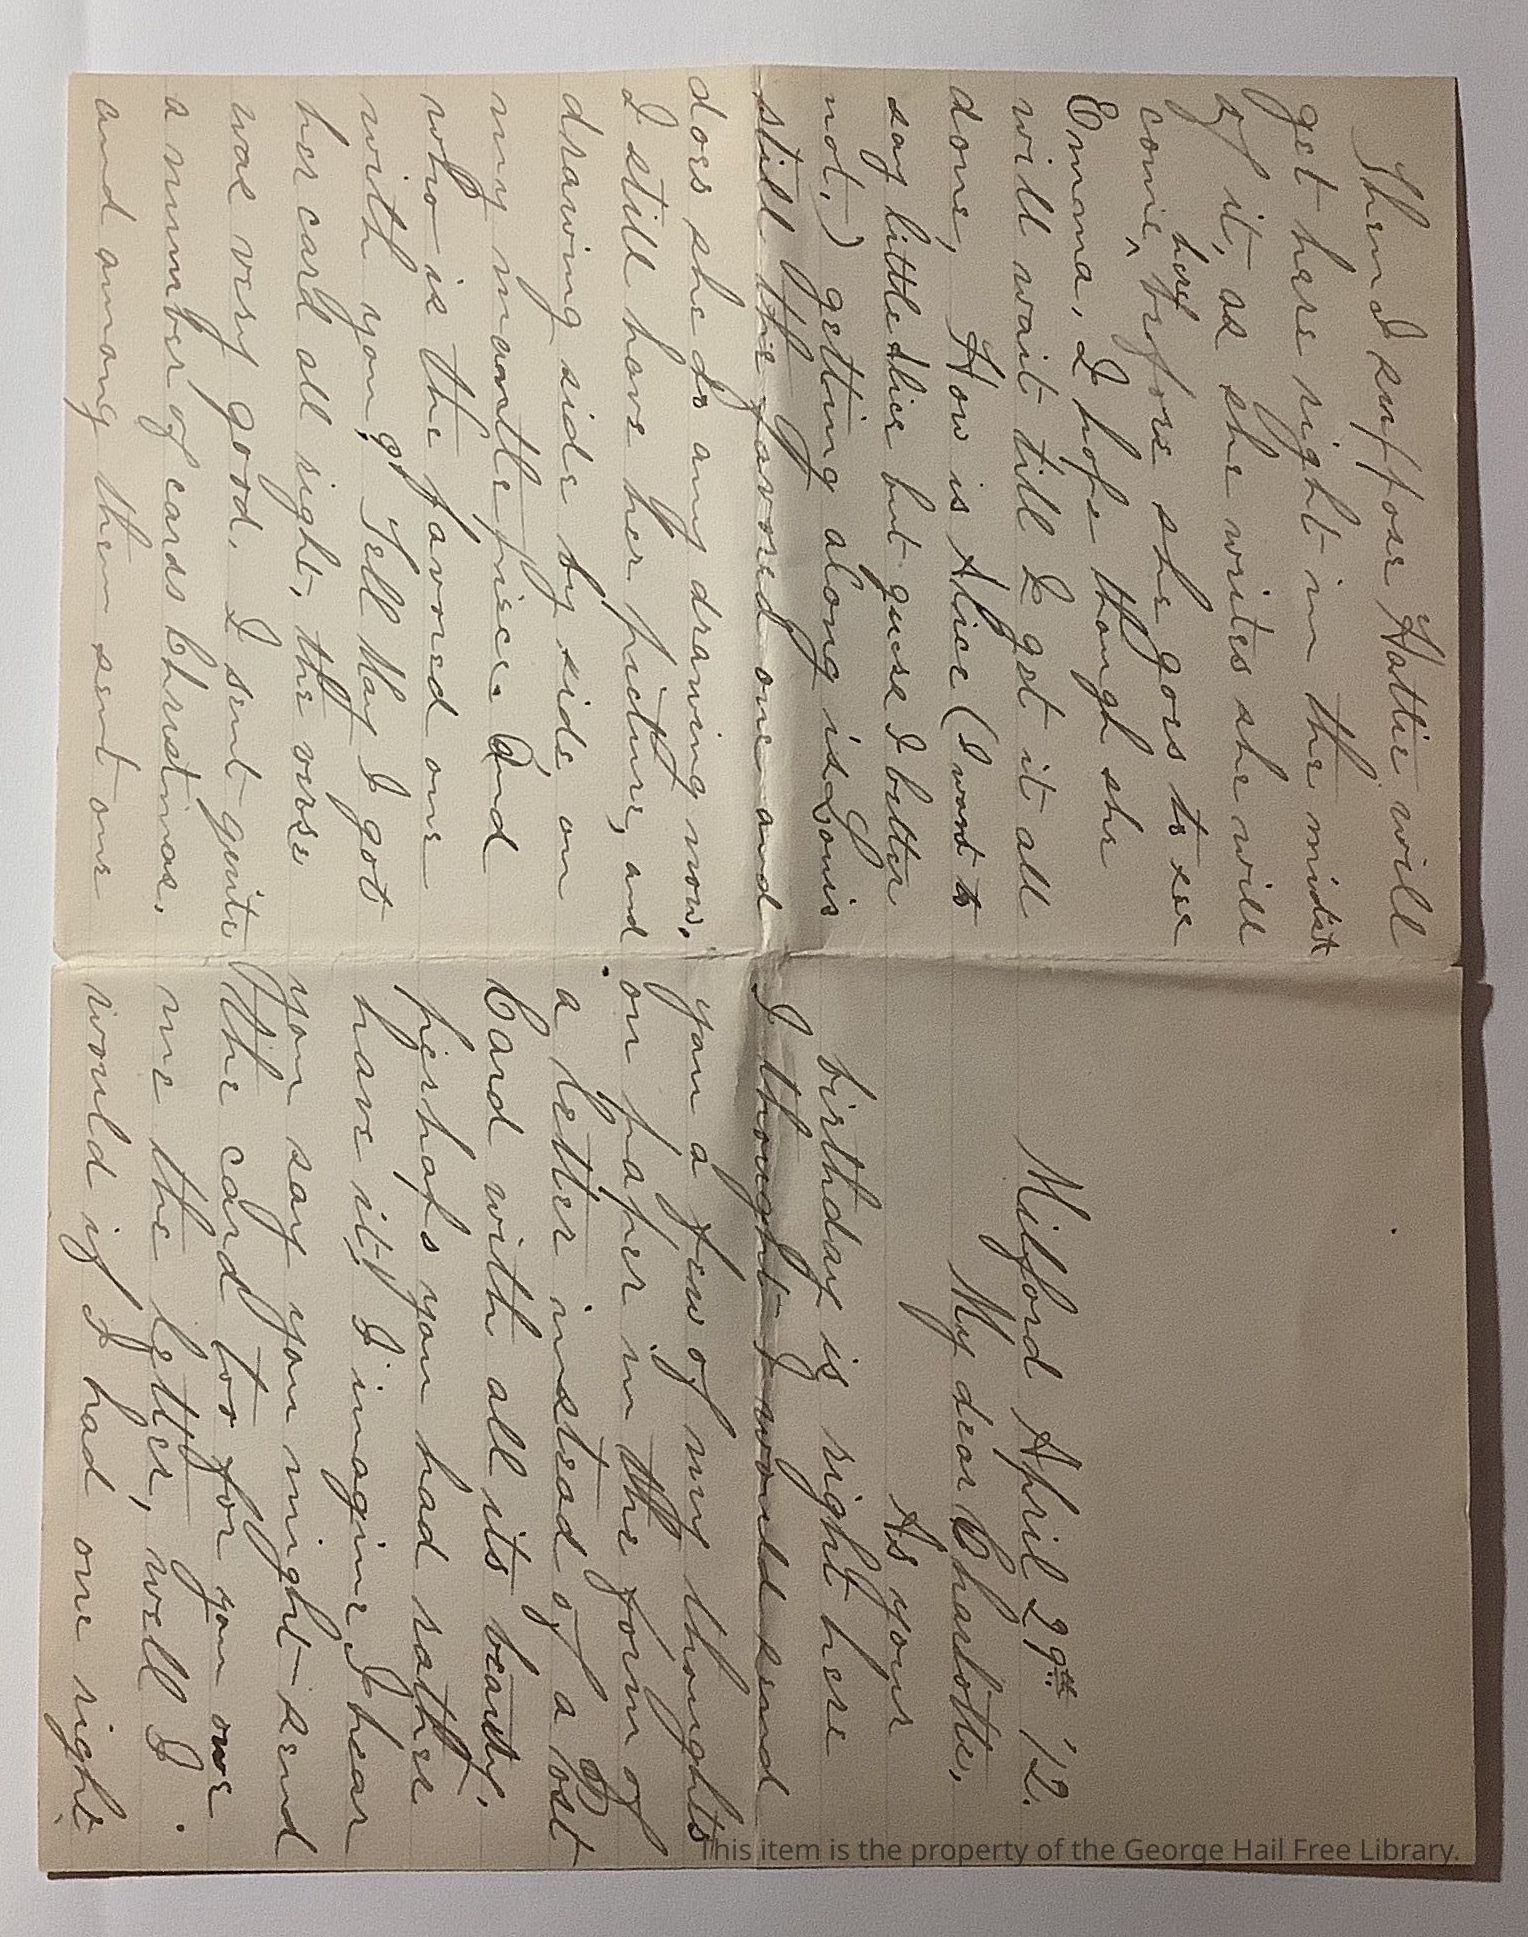 Milford April 29th '12.
My dear Charlotte,
As your
birthday is right here
I thought I would send
you a few of my thoughts
on paper in the form of
a letter instead of a Post
Card with all its beauty,
perhaps you had rather
have it, I imagine I hear
you say you might send
the card too for you owe
me the letter, well I
would if I had one right
Then I suppose Hattie will
get here right in the midst
of it, as she writes she will
come here before she goes to see
Emma, I hope though she
will wait till I get it all
done, How is Alice (I want to
say little Alice but guess I better
not,) getting along is Louis
still the favored one and
does she do any drawing now.
I still have her picture, and
drawing side by side on
my mantle piece. And
who is the favored one
with you? Tell May I got
her card all right, the verse
was very good. I sent quite
a number of cards Christmas,
and among them sent one
This item is the property of the George Hail Free Library.